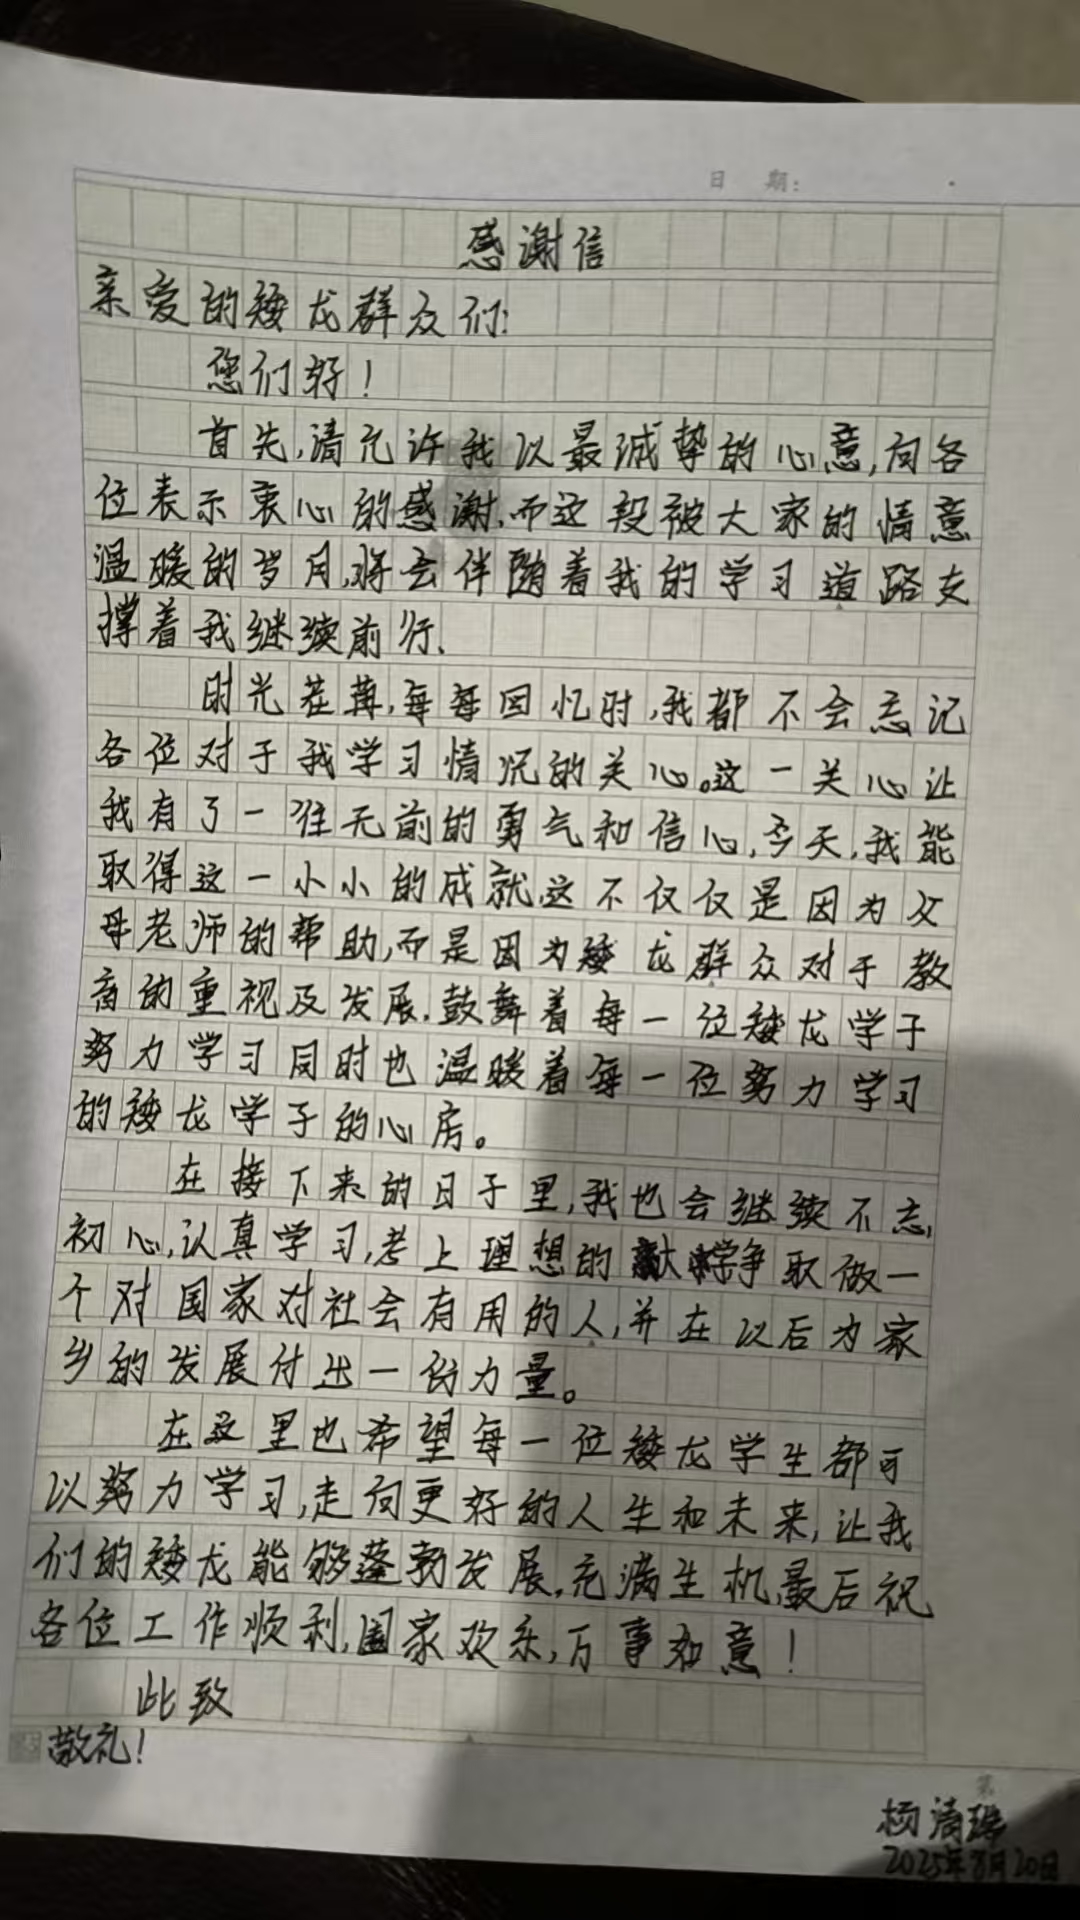 日 期:
感谢信
亲爱的矮龙群众们:
您们好!
首先,请允许我以最诚挚的心意,向各
位表示衷心的感谢.而这段被大家的情意
温暖的岁月,将会伴随着我的学习道路支
撑着我继续前行.
时光荏苒,每每回忆时,我都不会忘记
各位对于我学习情况的关心。这一关心让
我有了一往无前的勇气和信心,今天,我能
取得这一小小的成就,这不仅仅是因为父
母老师的帮助,而是因为矮龙群众对于教
育的重视及发展.鼓舞着每一位矮龙学子
努力学习同时也温暖着每一位努力学习
的矮龙学子的心房。
在接下来的日子里,我也会继续不忘
初心,认真学习,考上理想的大学争取做一
个对国家对社会有用的人,并在以后为家
乡的发展付出一份力量。
在这里也希望每一位矮龙学生都可
以努力学习,走向更好的人生和未来,让我
们的矮龙能够蓬勃发展,充满生机,最后祝
各位工作顺利,国家欢乐,万事如意!
此致
敬礼!
第
杨清
2025年8月20日